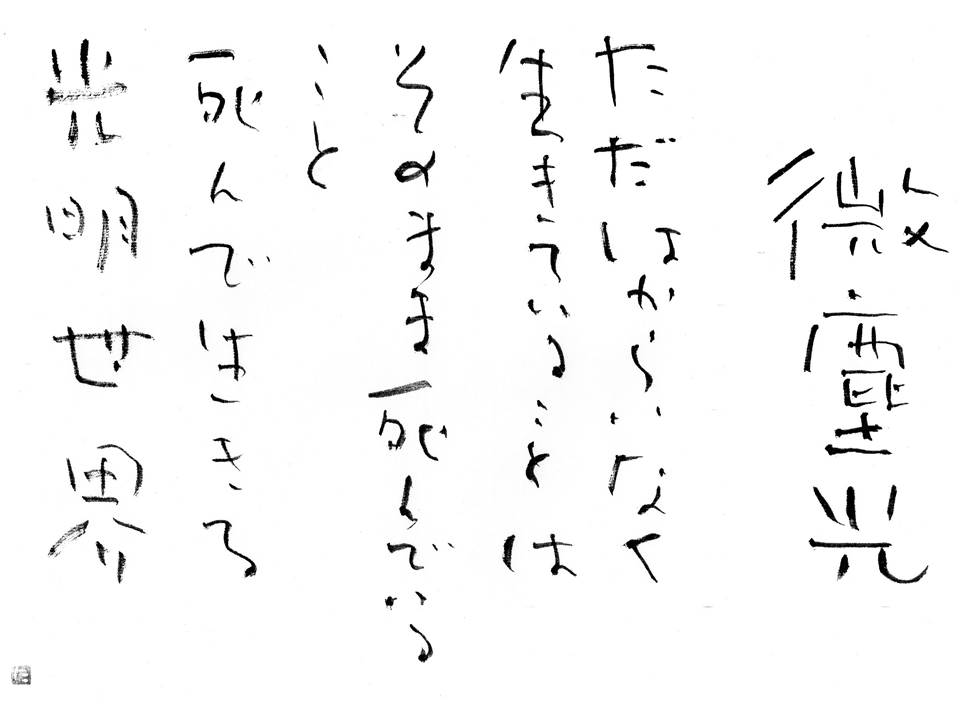 微塵光
ただはからいなく
生きていることは
そのまま死んでいる
こと
死んではきえる
光明世界